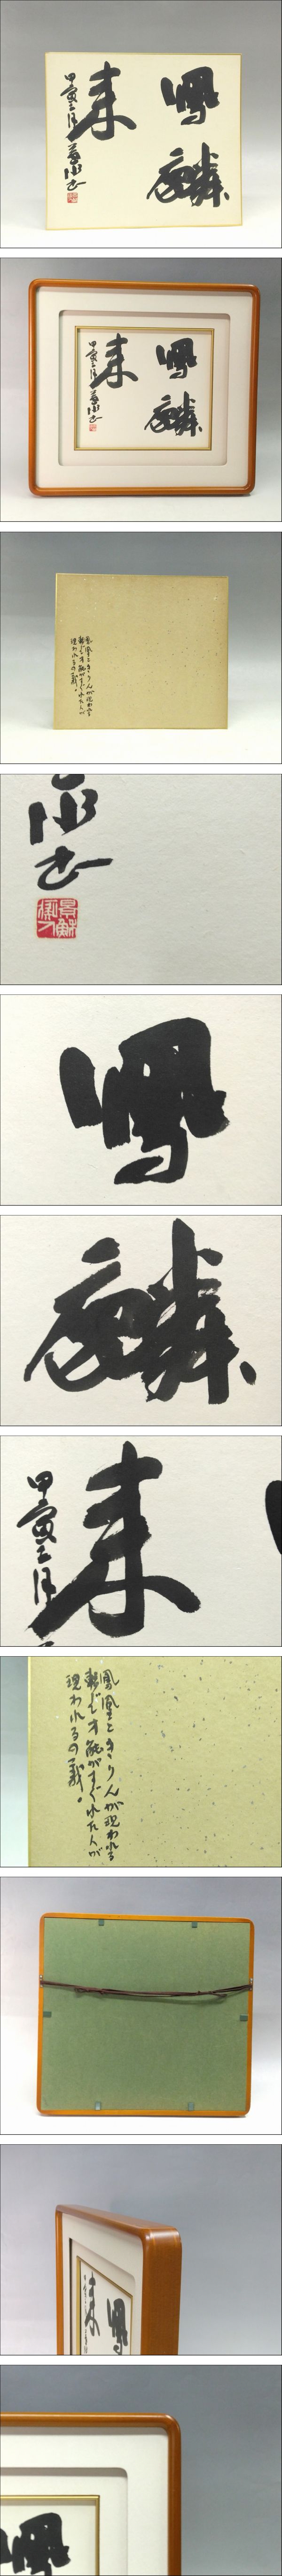 鳳
麟
来
甲寅三月
鳳
麟
来
甲寅三月
鳳凰ときりんが現われる
転じて才能がすぐれた人が
現われるの義。
鳳
麟
来
甲寅三月
鳳凰ときりんが現われる
転じて才能がすぐれた人が
現われるの義。
来
鳳